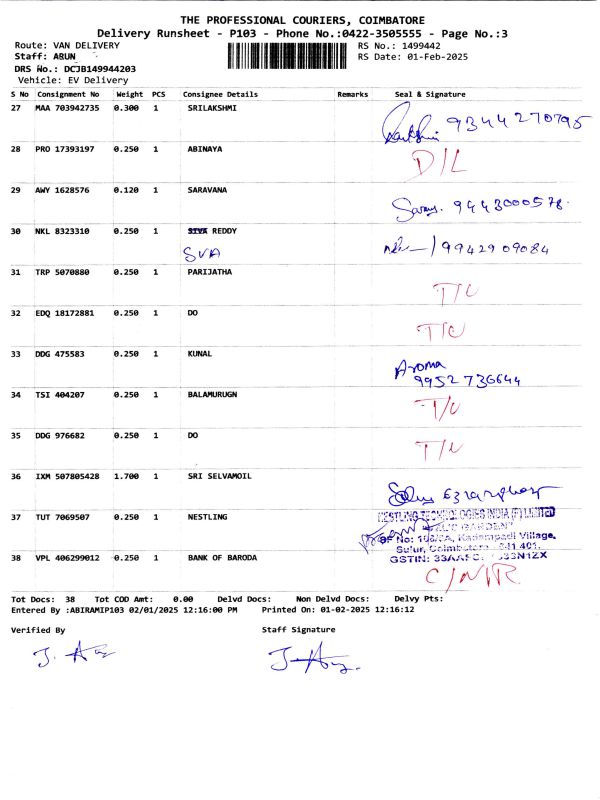 THE PROFESSIONAL COURIERS, COIMBATORE
Delivery Runsheet - P103 - Phone No.:0422-3505555 - Page No.:3
Route: VAN DELIVERY RS No.: 1499442
Staff: ARUN RS Date: 01-Feb-2025
DRS No.: DCJB149944203
Vehicle: EV Delivery
S No Consignment No Weight PCS Consignee Details Remarks Seal & Signature
27 MAA 703942735 0.300 1 SRILAKSHMI 9344270795
28 PRO 17393197 0.250 1 ABINAYA D/L
29 AWY 1628576 0.120 1 SARAVANA 9443000578
30 NKL 8323310 0.250 1 SIVA REDDY
SVA 9942909084
31 TRP 5070880 0.250 1 PARIJATHA T/C
32 EDQ 18172881 0.250 1 DO T/C
33 DDG 475583 0.250 1 KUNAL Aroma
9952736644
34 TSI 404207 0.250 1 BALAMURUGN T/C
35 DDG 976682 0.250 1 DO T/C
36 IXM 507805428 1.700 1 SRI SELVAMOIL
37 TUT 7069507 0.250 1 NESTLING NESTLING TECHNOLOGIES INDIA (P) LIMITED
GARDEN"
SF No: Kadampadi Village,
Sulur, Coimbatore
38 VPL 406299012 0.250 1 BANK OF BARODA GSTIN:
C/NR
Tot Docs: 38 Tot COD Amt: 0.00 Delvd Docs: Non Delvd Docs: Delvy Pts:
Entered By :ABIRAMIP103 02/01/2025 12:16:00 PM Printed On: 01-02-2025 12:16:12
Verified By Staff Signature